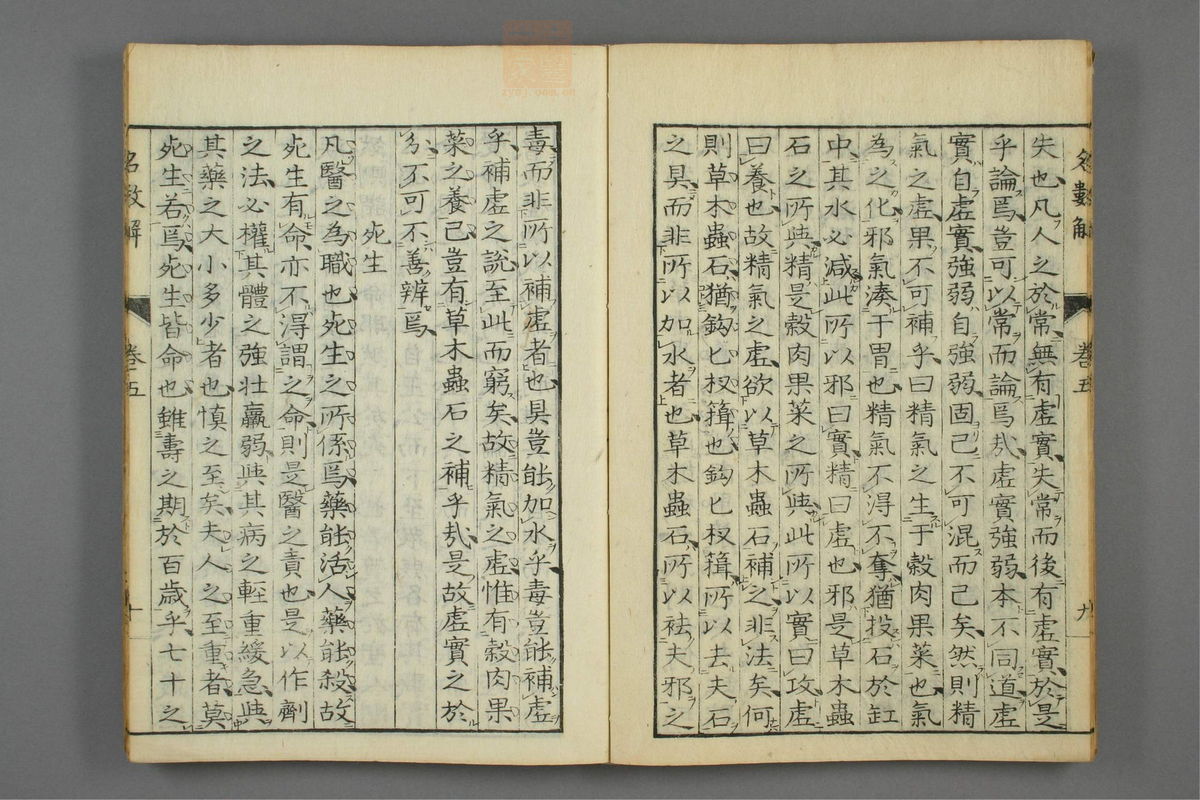 名數解 卷五 九
失也凡人之於常無有虛實失常而後有虛實於是
乎論焉豈可以常而論焉哉虛實強弱本不同道虛
實自虛實強弱自強弱固已不可混而已矣然則精
氣之虛果不可補乎曰精氣之生于穀肉果菜也氣
為之化邪氣湊于胃也精氣不得不奪猶投石於缸
中其水必減此所以邪曰實精曰虛也邪是草木蟲
石之所與精是穀肉果菜之所與此所以實曰攻虛
曰養也故精氣之虛欲以草木蟲石補之非法矣何
則草木蟲石猶鈎匕杈篛也鈎匕杈篛所以去夫石
之具而非所以加水者也草木蟲石所以袪夫邪之
毒而非所以補虛者也具豈能加水乎毒豈能補虛
乎補虛之說至此而窮矣故精氣之虛惟有穀肉果
菜之養已豈有草木蟲石之補乎哉是故虛實之於
分不可不善辨焉
死生
凡醫之為職也死生之所係焉藥能活人藥能殺故
死生有命亦不得謂之命則是醫之責也是以作劑
之法必權其體之強壯羸弱與其病之輕重緩急與
其藥之大小多少者也慎之至矣夫人之至重者莫
死生若焉死生皆命也雖壽之期於百歲乎七十之
名數解 卷五 十